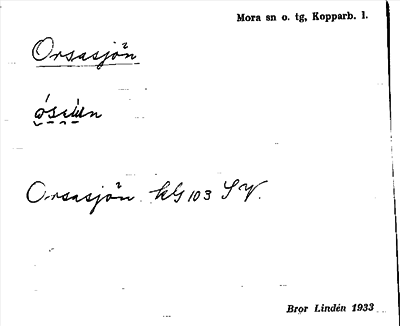 Mora sn o. tg, Kopparb. l.
Orsasjön
Orsasjön kG 103 SV.
Bror Lindén 1933